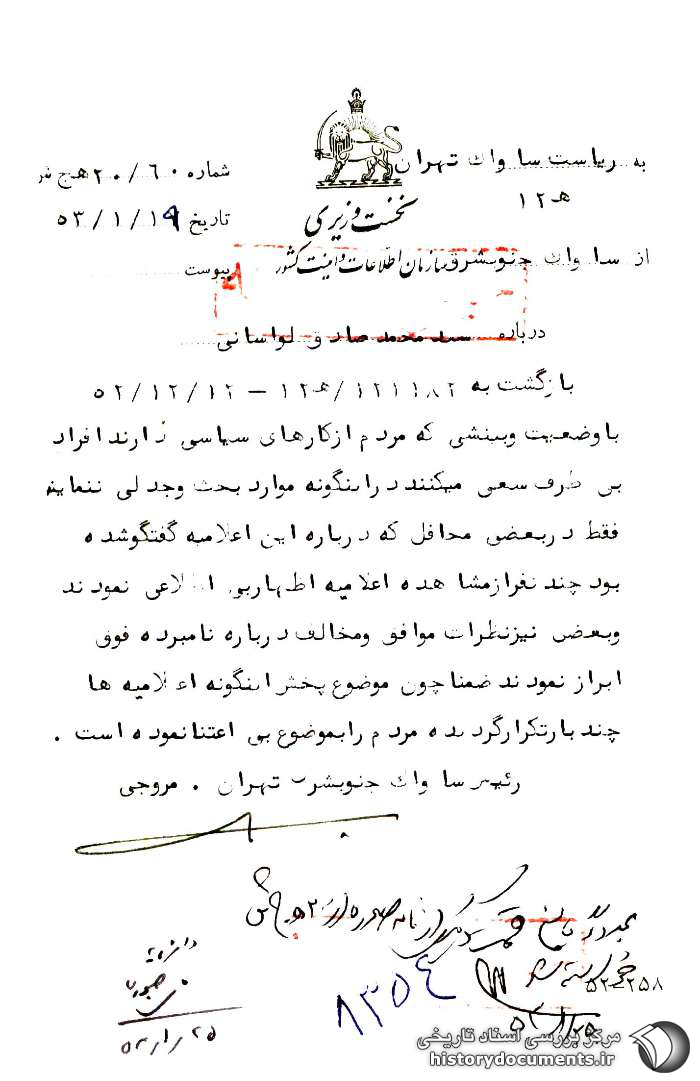 به ریاست ساواک تهران
۱۲ هـ
شماره ۲۰/۶۰ هـ ج ش
تاریخ ۵۳/۱/۱۹
نخست وزیری
سازمان اطلاعات و امنیت کشور
از ساواک جنوبشرق
پیوست
درباره سید محمد صادق لواسانی
بازگشت به ۱۲۱۱۸۲/هـ۱۲ – ۵۲/۱۲/۱۲
باوضعیت وبینشی که مردم ازکارهای سیاسی دارند افراد
بی طرف سعی میکنند دراینگونه موارد بحث وجدلی ننمایند
فقط دربعضی محافل که درباره این اعلامیه گفتگوشده
بود چند نفرازمشاهده اعلامیه اظهاربی اطلاعی نمودند
وبعضی نیزنظرات موافق ومخالف درباره نامبرده فوق
ابراز نمودند ضمنا چون موضوع پخش اینگونه اعلامیه ها
چند بارتکرارگردیده مردم رابموضوع بی اعتنانموده است .
رئیس ساواک جنوبشرق تهران . مروجی
۸۳۵۴
۵۲-۲۵۸
مرکز بررسی اسناد تاریخی
historydocuments.ir